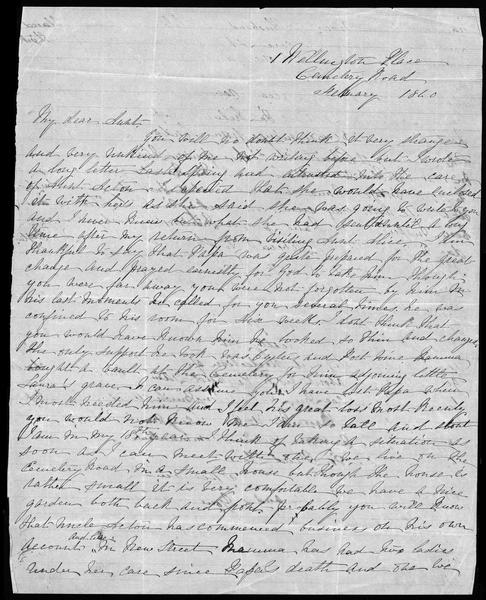 1 Wellington Place
Cemetery Road
February 1860
My dear Aunt,
You will no doubt think it very strange
and very unkind of me not writing before but I wrote
a long letter last spring and intrusted into the care
of Aunt Acton I expected that she would have enclosed
it with hers as she said she was going to write to you
and I never knew but what she had sent until a long
time after my return from visiting Aunt Alice I am
thankful to say that Papa was quite prepared for the great
change and prayed earnestly for God to take him though
you were far away you were not forgotten by him in
his last moments he called for you several times he was
confined to his room for six weeks I dont think that
you would have known him he looked so thin and changed
the only support he took was and Port wine Mamma
bought a vault at the Cemetery for him adjoining little
Laura's grave I can assure you I have lost Papa when
I most needed him and I feel his great loss most keenly
you would not know me I am so tall and stout
I am in my year I think of taking a situation as
soon as I can meet with one we live on the
Cemetery Road in a small house but though the house is
rather small it is very comfortable we have a nice
garden both back and front probably you will know
that Uncle Acton has commenced business on his own
account in New Street Mamma has had two ladies
under her care since Papa's death and one we